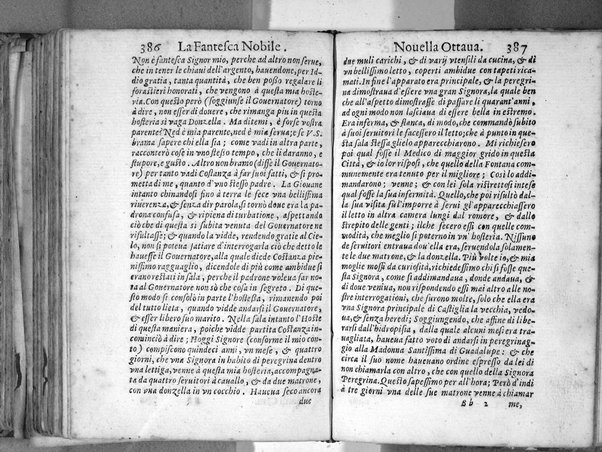 386 La Fantesca Nobile.
Non è fantesca Signor mio, perche ad altro non serue,
che in tener le chiaui dell'argento, hauendone, per Id-
dio gratia, tanta quantità, che ben posso regalare i
forastieri honorati, che vengono à questa mia hoste-
ria. Con questo però (soggiunse il Gouernatore) torno
à dire, non esser di douere, che rimanga piu in questa
hosteria sì vaga Donzella. Ma ditemi, è forse vostra
parente? Nè è mia parente, nè è mia serua; se V.S.
brama sapere chi ella sia; come vadi in altra parte,
racconterò cose in vno stesso tempo, che li daranno, e
stupore, e gusto. Altro non bramo (disse il Gouernato-
re) per tanto vadi Costanza à far suoi fatti, & si pro-
metta di me, quanto d'vno stesso padre. La Giouane
intanto chinandosi sino à terra le fece vna bellissima
riuerenza, & senza dir parola, si tornò doue era la pa-
drona confusa, & ripiena di turbatione, aspettando
ciò che di questa sì subita venuta del Gouernatore ne
risultasse; & quando la vidde, rendendo gratie al Cie-
lo, non si poteua satiare d'interrogarla ciò che detto le
hauesse il Gouernatore, alla quale diede Costanza pie-
nissimo ragguaglio, dicendole di più come ambidue si
erano restati in sala, perche il padrone voleua far no-
to al Gouernatore non sò che cosa in segreto. Di que-
sto modo si consolò in parte l'hostessa, rimanendo poi
del tutto lieta, quando vidde andarsi il Gouernatore,
& esser libero suo marito. Nella sala intanto l'Hoste
di questa maniera, poiche vidde partita Costanza in-
cominciò à dire; Hoggi Signore (conforme il mio con-
to) compiscono quindeci anni, vn mese, & quattro
giorni, che vna Signora in habito di peregrina dentro
vna lettiga, venne à questa mia hosteria, accompagna-
ta da quattro seruitori à cauallo, & da due matrone,
con vna donzella in vn cocchio. Haueua seco ancora
due
Nouella Ottaua. 387
due muli carichi, & di varij vtensili da cucina, & di
vn bellissimo letto, coperti ambidue con tapeti rica-
mati. In fine l'apparato era principale, & la peregri-
na dimostraua d'essere vna gran Signora, la quale ben
che all'aspetto dimostrasse di passare li quarant'anni,
ad ogni modo non lasciaua di essere bella in estremo.
Era inferma, & stanca, di modo, che commandò subito
à suoi seruitori le facessero il letto; che à punto in que-
sta sala stessa glielo apparecchiarono. Mi richiesero
poi qual fosse il Medico di maggior grido in questa
Città, & io lor risposi, che quello della Fontana com-
munemente era tenuto per il migliore; Così lo addi-
mandarono; venne; & con lei sola ristrettosi intese
qual fosse la sua infermità. Quello, che poi risultò dal-
la sua visita fu l'imporre à serui gli apparecchiassero
il letto in altra camera lungi dal romore, & dallo
strepito delle genti; ilche fecero essi con quelle com-
modità, che meglio si poterno in vn' hosteria. Nissuno
de seruitori entraua dou'ella era, seruendola solamen-
te le due matrone, & la donzella. Più volte io, & mia
moglie mossi da curiosità, richiedessimo chi si fosse que-
sta Signora, come si addimandaua, donde andaua, &
di doue veniua, non rispondendo essi mai altro alle no-
stre interrogationi, che furono molte, solo che ella era
vna Signora principale di Castiglia la vecchia, vedo-
ua, & senza heredi; Soggiungendo, che affine di libe-
rarsi dall'hidropisia, dalla quale alcuni mesi era tra-
uagliata, haueua fatto voto di andarsi in peregrinag-
gio alla Madonna Santissima di Guadalupe: & che
circa il suo nome haueuano ordine espresso da lei di
non chiamarla con altro, che con quello della Signora
Peregrina. Questo sapessimo per all'hora; Però d'indi
à tre giorni vna delle sue matrone venne à chiamar
Bb 2 me,